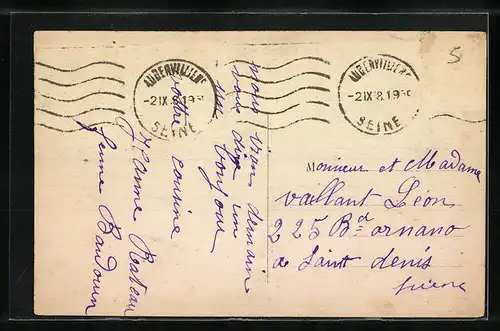 5
AUBERVILLIERS
-2 IX 8 19 30
SEINE
AUBERVILLIERS
-2 IX 8 19 30
SEINE
nous irons demain
vous dire un
bonjour
votre cousine
Jeanne Rateau
Jeanne Baudouin
Monsieur et Madame
Vaillant Léon
225 Bd ornano
a Saint denis
Seine